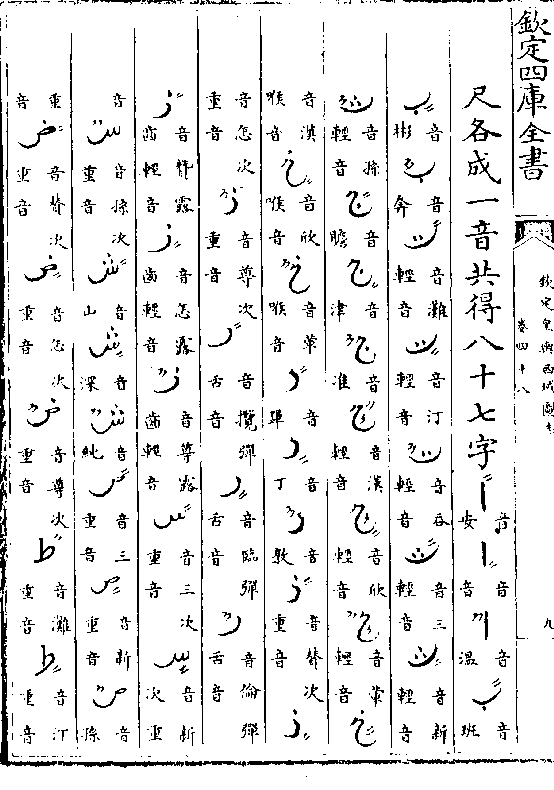 欽定四庫全書
欽定皇輿西域圖志
卷四十八
九
尺各成一音共得八十七字 اً 音安 اٍ 音音 اٌ 音溫 بً 音班
بٍ 音彬 بٌ 音奔 تً 音灘輕音 تٍ 音汀輕音 تٌ 音吞輕音 ثً 音三輕音 ثٍ 音新輕音
ثٌ 音孫輕音 جً 音瞻 جٍ 音津 جٌ 音准 حً 音漢輕音 حٍ 音欣輕音 حٌ 音葷輕音 خً
音漢喉音 خٍ 音欣喉音 خٌ 音葷喉音 دً 音單 دٍ 音丁 دٌ 音敦 ذً 音贊次重音 ذٍ
音怎次重音 ذٌ 音尊次重音 رً 音攬彈舌音 رٍ 音臨彈舌音 رٌ 音倫彈舌音
زً 音贊露齒輕音 زٍ 音怎露齒輕音 زٌ 音尊露齒輕音 سً 音三次重音 سٍ 音新次重
音 سٌ 音孫次重音 شً 音山 شٍ 音深 شٌ 音純 صً 音三重音 صٍ 音新重音 صٌ 音孫
重音 ضً 音贊次重音 ضٍ 音怎次重音 ضٌ 音尊次重音 طً 音灘重音 طٍ 音汀重音